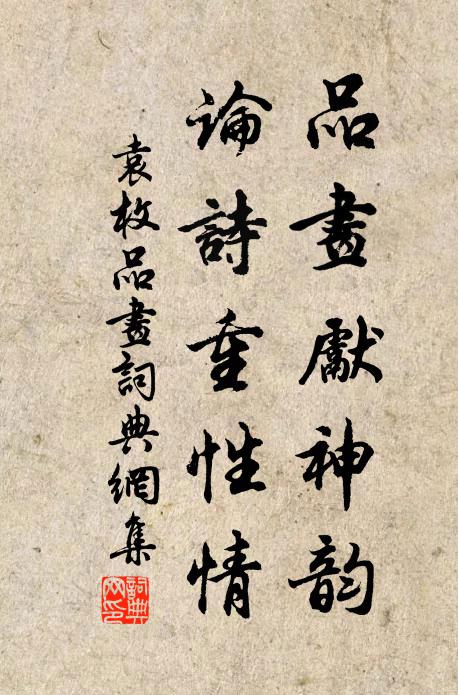 品畫獻神韵
論詩重性情
袁枚品畫詞典網集
詞典網印